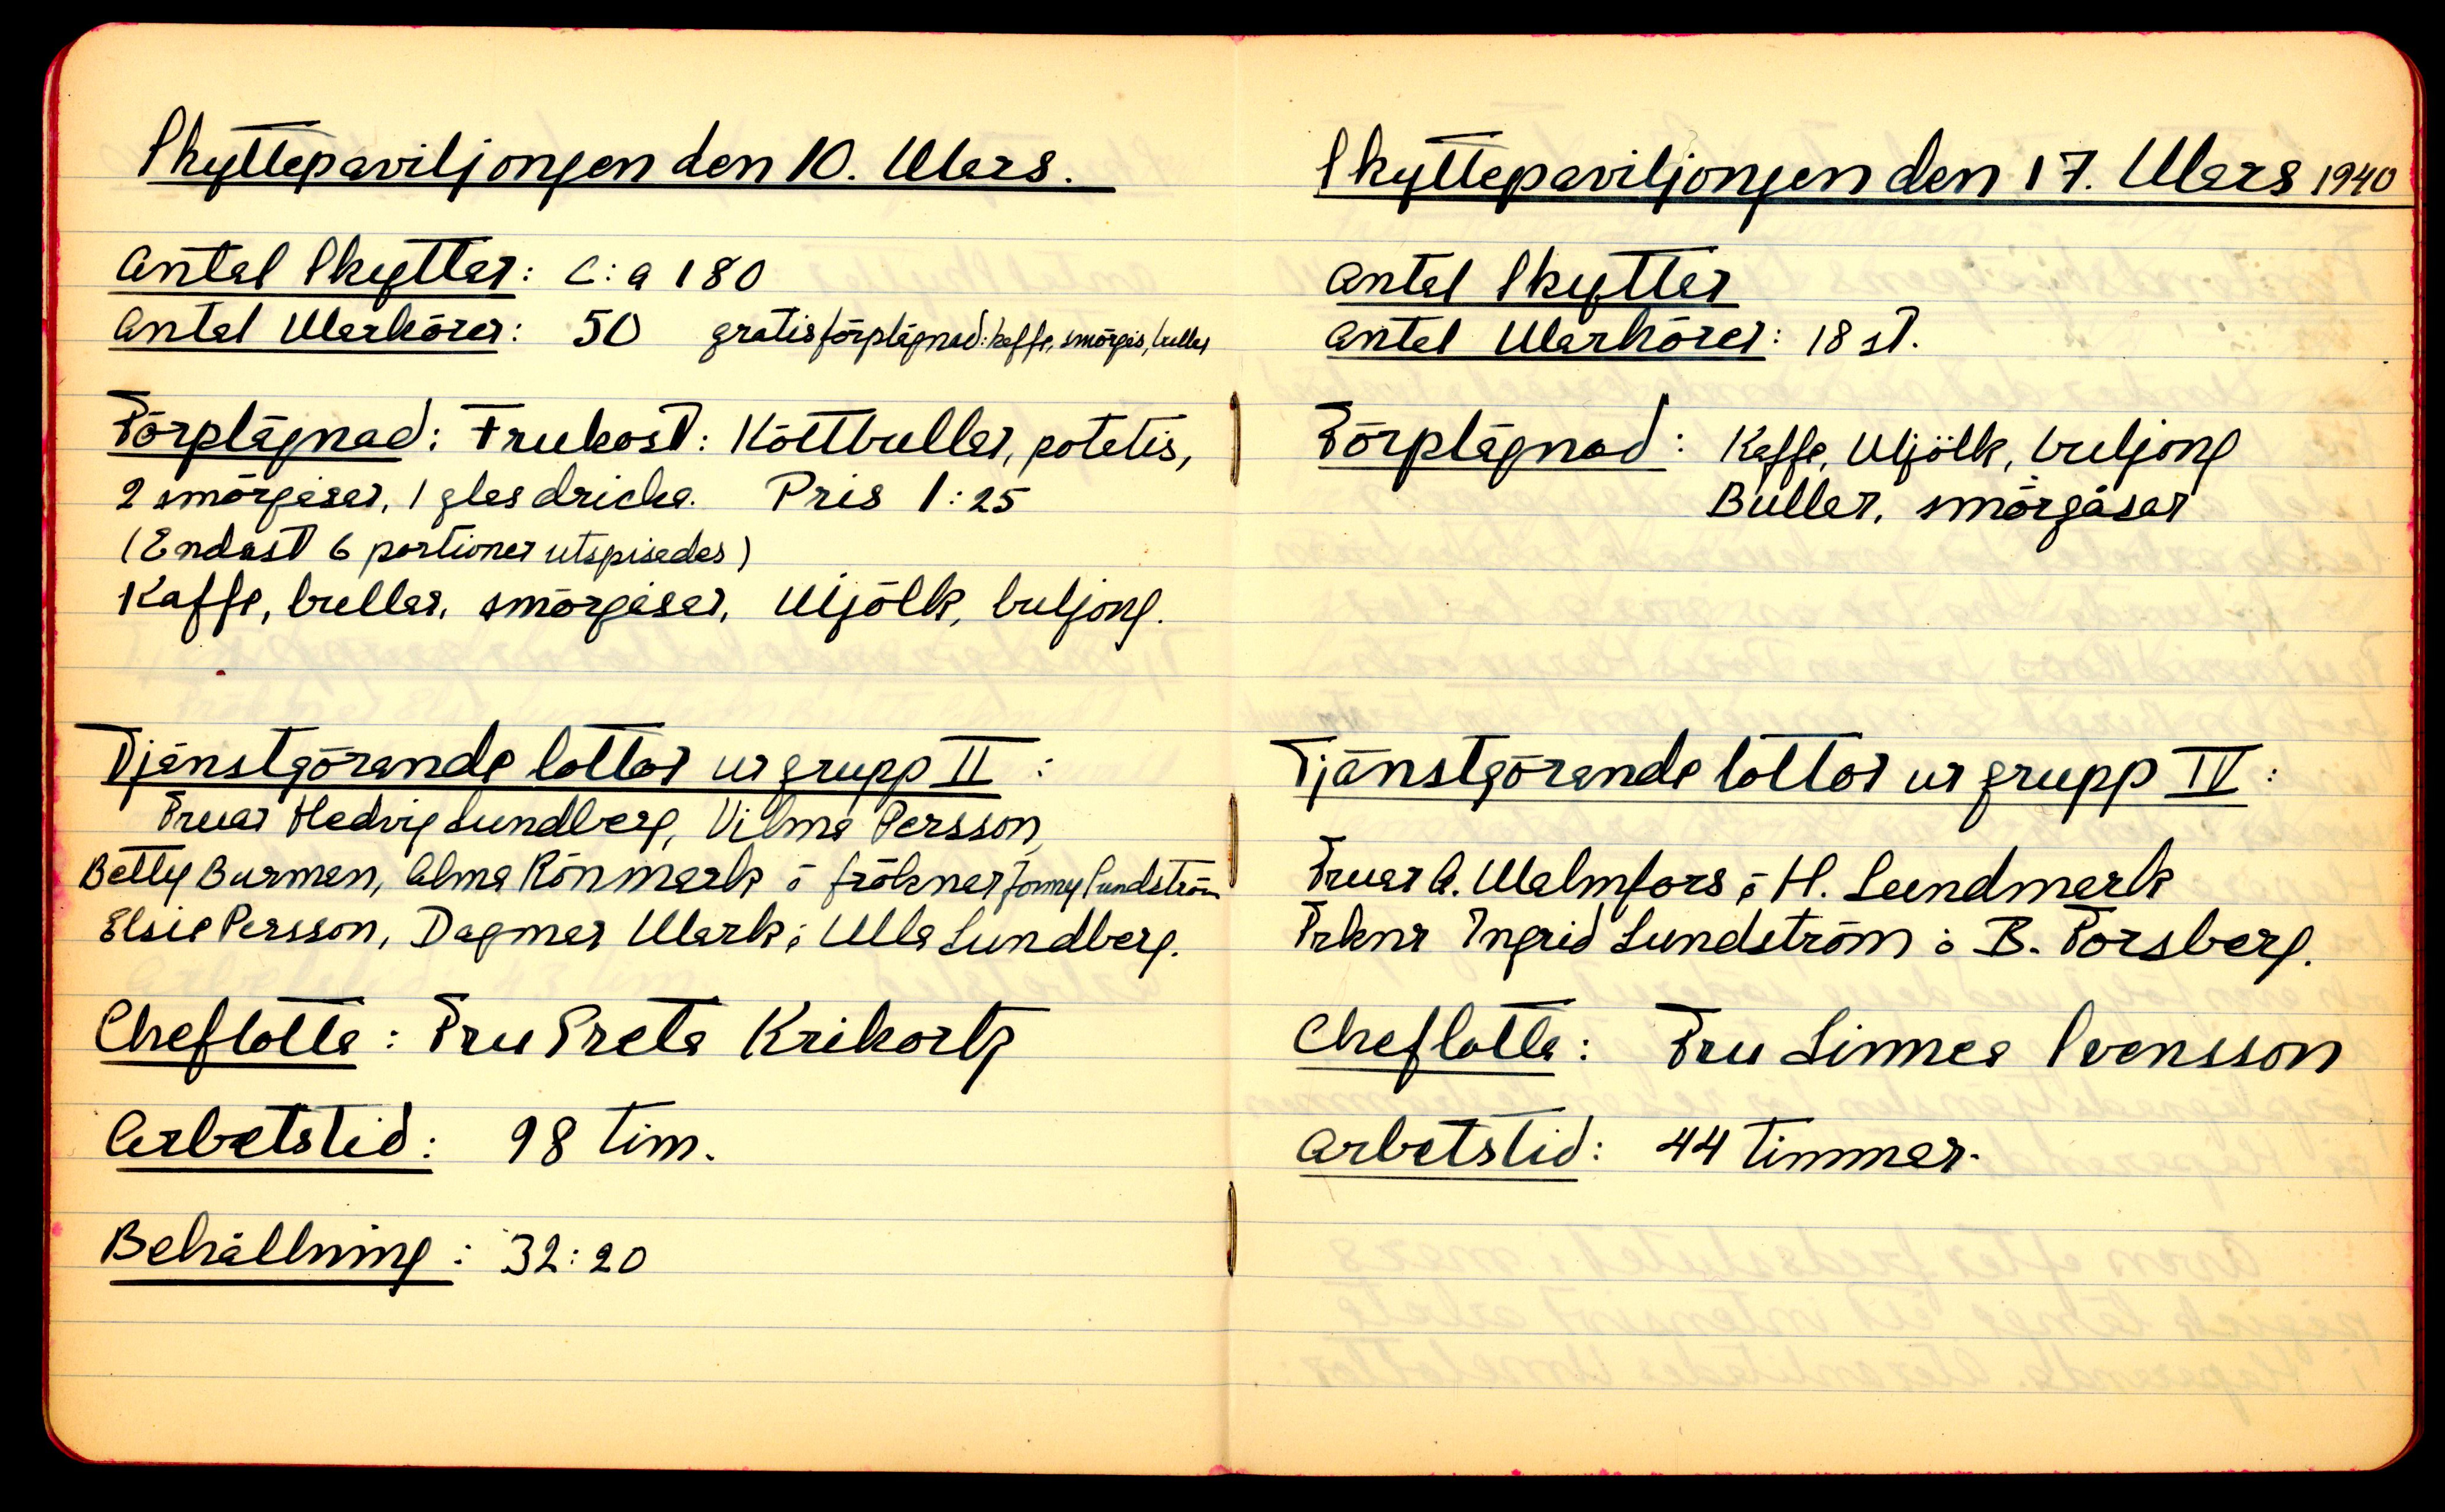 Skyttepaviljongen den 10. Mars.
Antal Skyttar: C:a 180
Antal Markörer: 50 gratis förplägnad: kaffe, smörgås, bullar
Förplägnad: Frukost: Köttbullar, potatis,
2 smörgåsar, 1 glas dricka. Pris 1:25
(Endast 6 portioner utspisades)
Kaffe, bullar, smörgåsar, Mjölk, buljong.
Tjänstgörande lottor ur grupp II:
Fruar Hedvig Lundberg, Vilma Persson,
Betty Burman, Alma Rönmark o fröknar Sundström
Elsie Persson, Dagmar Mark o Ulla Lundberg.
Cheflotta: Fru Greta Krikortz
Arbetstid: 98 tim.
Behållning: 32:20
Skyttepaviljongen den 17. Mars 1940
Antal Skyttar
Antal Markörer: 18 st.
Förplägnad: Kaffe, Mjölk, buljong
Bullar, smörgåsar
Tjänstgörande lottor ur grupp IV:
Fruar A. Malmfors o H. Lundmark
Frknr Ingrid Lundström o B. Forsberg.
Cheflotta: Fru Linnea Svensson
Arbetstid: 44 timmar.